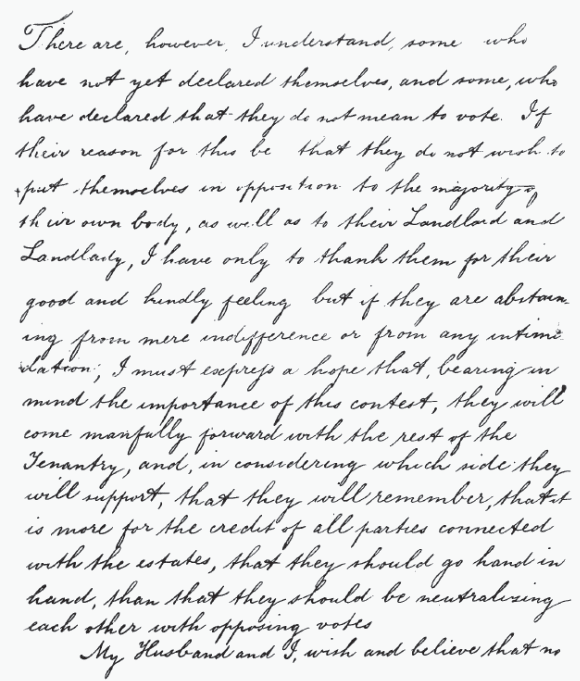 There are, however, I understand, some who
have not yet declared themselves, and some, who
have declared that they do not mean to vote. If
their reason for this be that they do not wish to
put themselves in opposition to the majority of
their own body, as well as to their Landlord and
Landlady, I have only to thank them for their
good and kindly feeling but if they are abstain-
ing from mere indifference or from any intimi-
dation, I must express a hope that, bearing in
mind the importance of this contest, they will
come manfully forward with the rest of the
Tenantry, and, in considering which side they
will support, that they will remember, that it
is more for the credit of all parties connected
with the estates, that they should go hand in
hand, than that they should be neutralizing
each other with opposing votes
My Husband and I, wish and believe that no